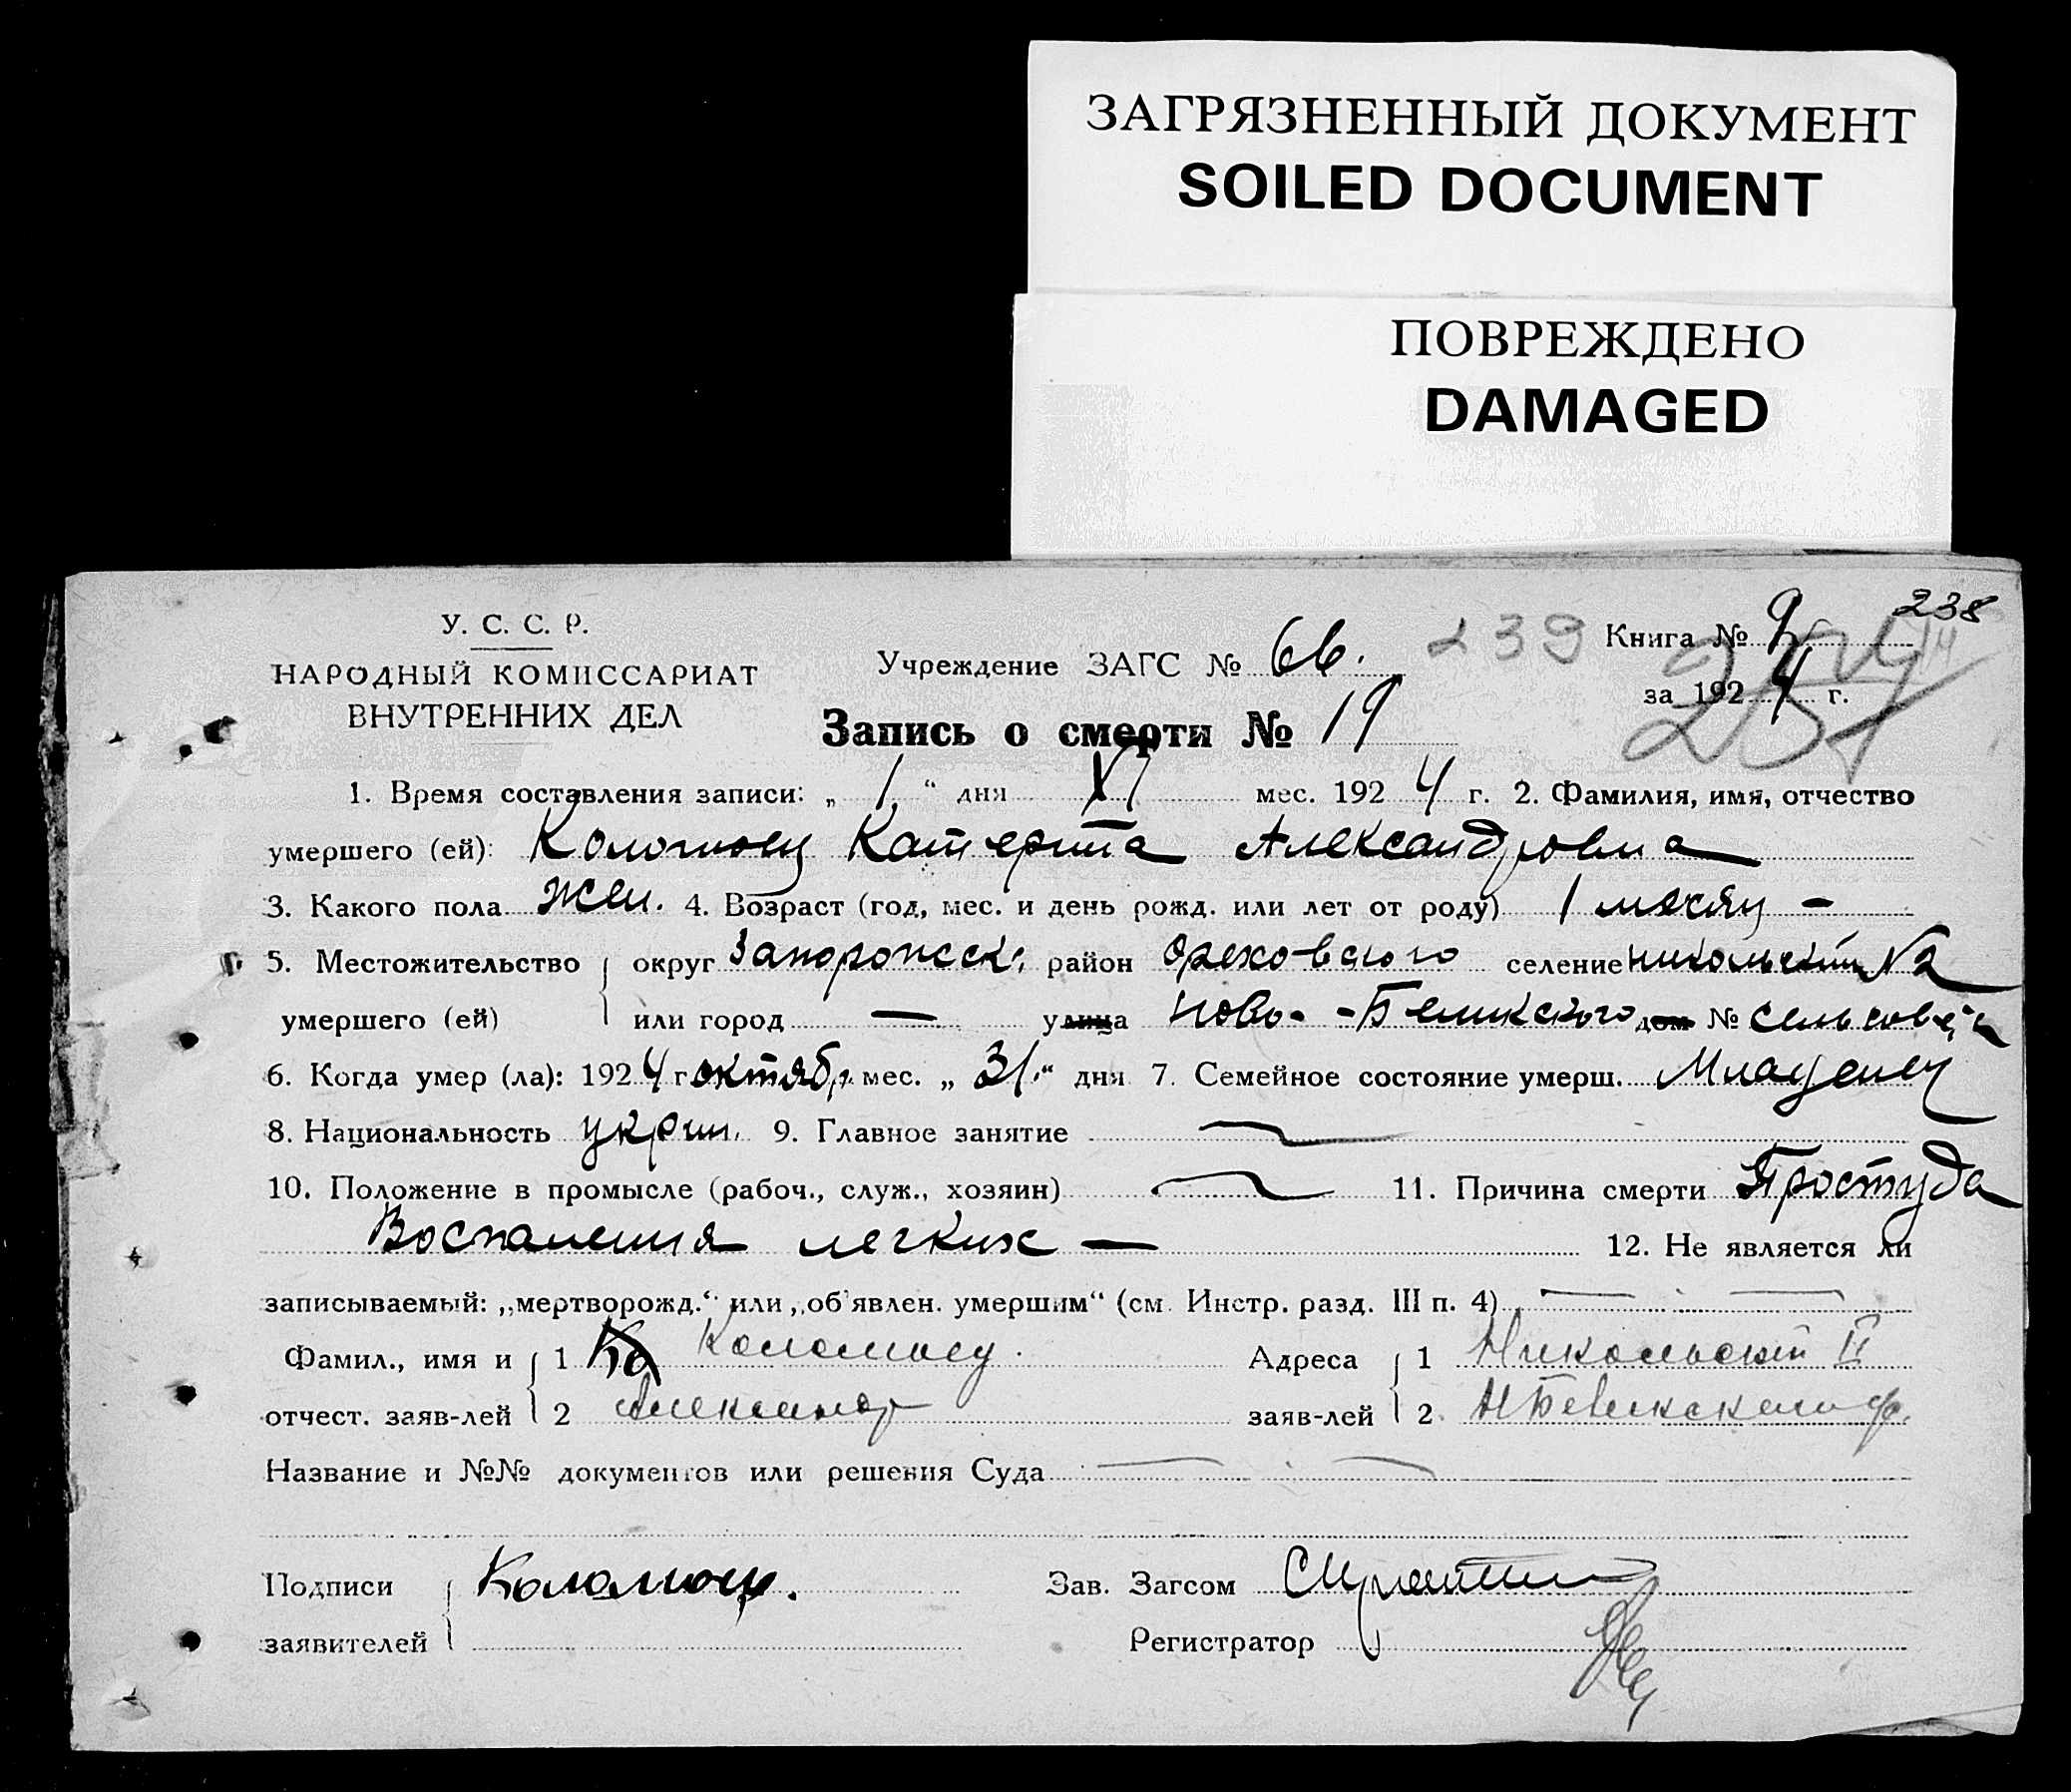 ЗАГРЯЗНЕННЫЙ ДОКУМЕНТ
SOILED DOCUMENT
ПОВРЕЖДЕНО
DAMAGED
238
У. С. С. Р.
НАРОДНЫЙ КОМИССАРИАТ
ВНУТРЕННИХ ДЕЛ
Учреждение ЗАГС № 66. 239
Книга № 9
за 1924 г.
Запись о смерти № 19
1. Время составления записи: „ 1 “ дня XI мес. 1924 г. 2. Фамилия, имя, отчество
умершего (ей): Коломоец Катерина Александровна
3. Какого пола жен. 4. Возраст (год, мес. и день рожд. или лет от роду) 1 месяц —
5. Местожительство округ Запорожск. район Ореховского селение Никольский №2
умершего (ей) или город — улица Ново-Беликского дом № сельсовета
6. Когда умер (ла): 1924 г октябр. мес. „ 31. “ дня 7. Семейное состояние умерш. Младенец
8. Национальность укрин. 9. Главное занятие
10. Положение в промысле (рабоч., служ., хозяин) 11. Причина смерти Простуда
Воспаления легких — 12. Не является ли
записываемый: „мертворожд.“ или „об'явлен. умершим“ (см. Инстр. разд. III п. 4)
Фамил., имя и 1 Ко Коломоец. Адреса 1 Никольский II
отчест. заяв-лей 2 Александр заяв-лей 2
Название и №№ документов или решения Суда
Подписи Коломоец. Зав. Загсом
заявителей Регистратор